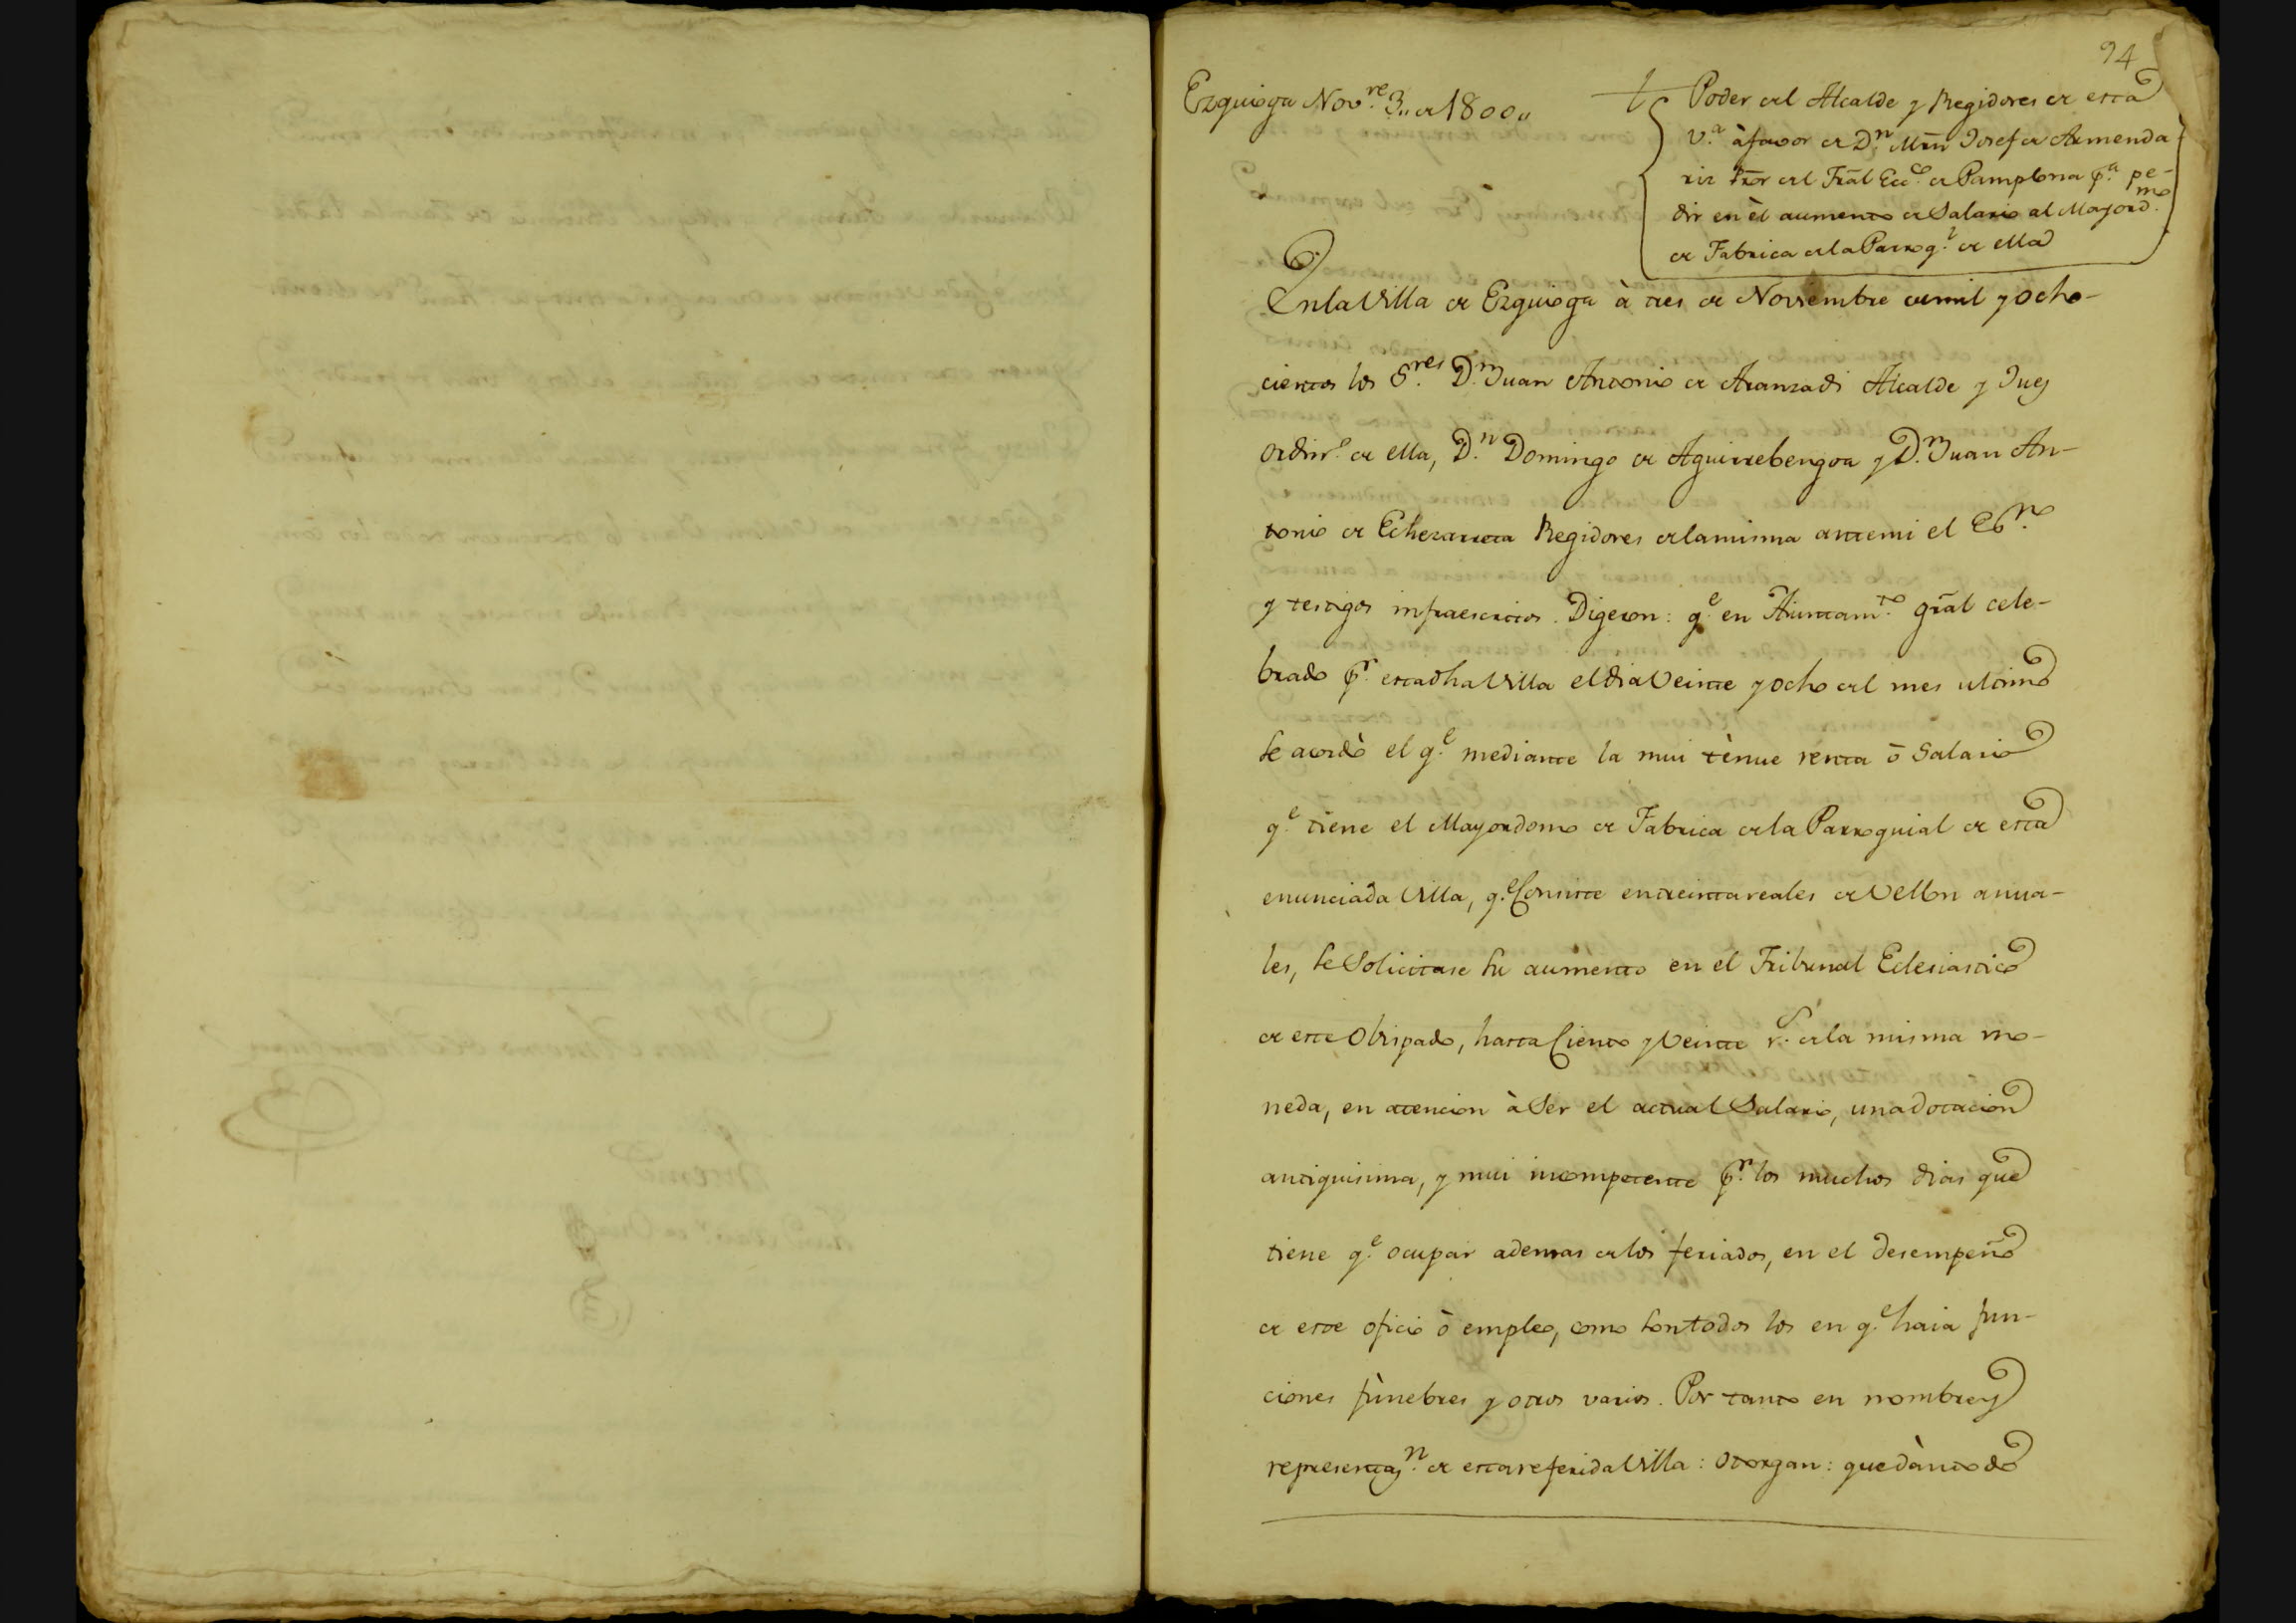 94
Ezquioga Nov.re 3,, de 1800,,
Poder del Alcalde y Regidores de esta
V.a à favor de D.n Mrn Josef de Armenda
riz Pror del Tral Ecc.o de Pamplona p.a pe-
dir en èl aumento de Salario al Mayord.mo
de Fabrica de la Parroq.l de ella
En la Villa de Ezquioga à tres de Noviembre de mil y ocho-
cientos los S.res D.n Juan Antonio de Aranzadi Alcalde y Juez
ordin.o de ella, D.n Domingo de Aguirrebengoa y D.n Juan An-
tonio de Echezarreta Regidores de la misma ante mi el Es.no
y testigos infraescritos. Digeron: q.e en Aiuntam.to gral cele-
brado p.r esta dha Villa el dia Veinte y ocho del mes ultimo
se acordò el q.e mediante la mui tènue renta ō Salario
q.e tiene el Mayordomo de Fabrica de la Parroquial de esta
enunciada Villa, q.e Consiste en treinta reales de Vellon anua-
les, se Solicitase su aumento en el Tribunal Eclesiastico
de este Obispado, hasta Ciento y Veinte r.s de la misma mo-
neda, en atencion à Ser el actual Salario, una dotacion
antiquisima, y mui incompetente p.r los muchos dias que
tiene q.e ocupar ademas de los feriados, en el desempeño
de este oficio ò empleo, como son todos los en q.e haia fun-
ciones fùnebres y otros varios. Por tanto en nombre y
representaz.n de esta referida Villa: Otorgan: que dàn todo